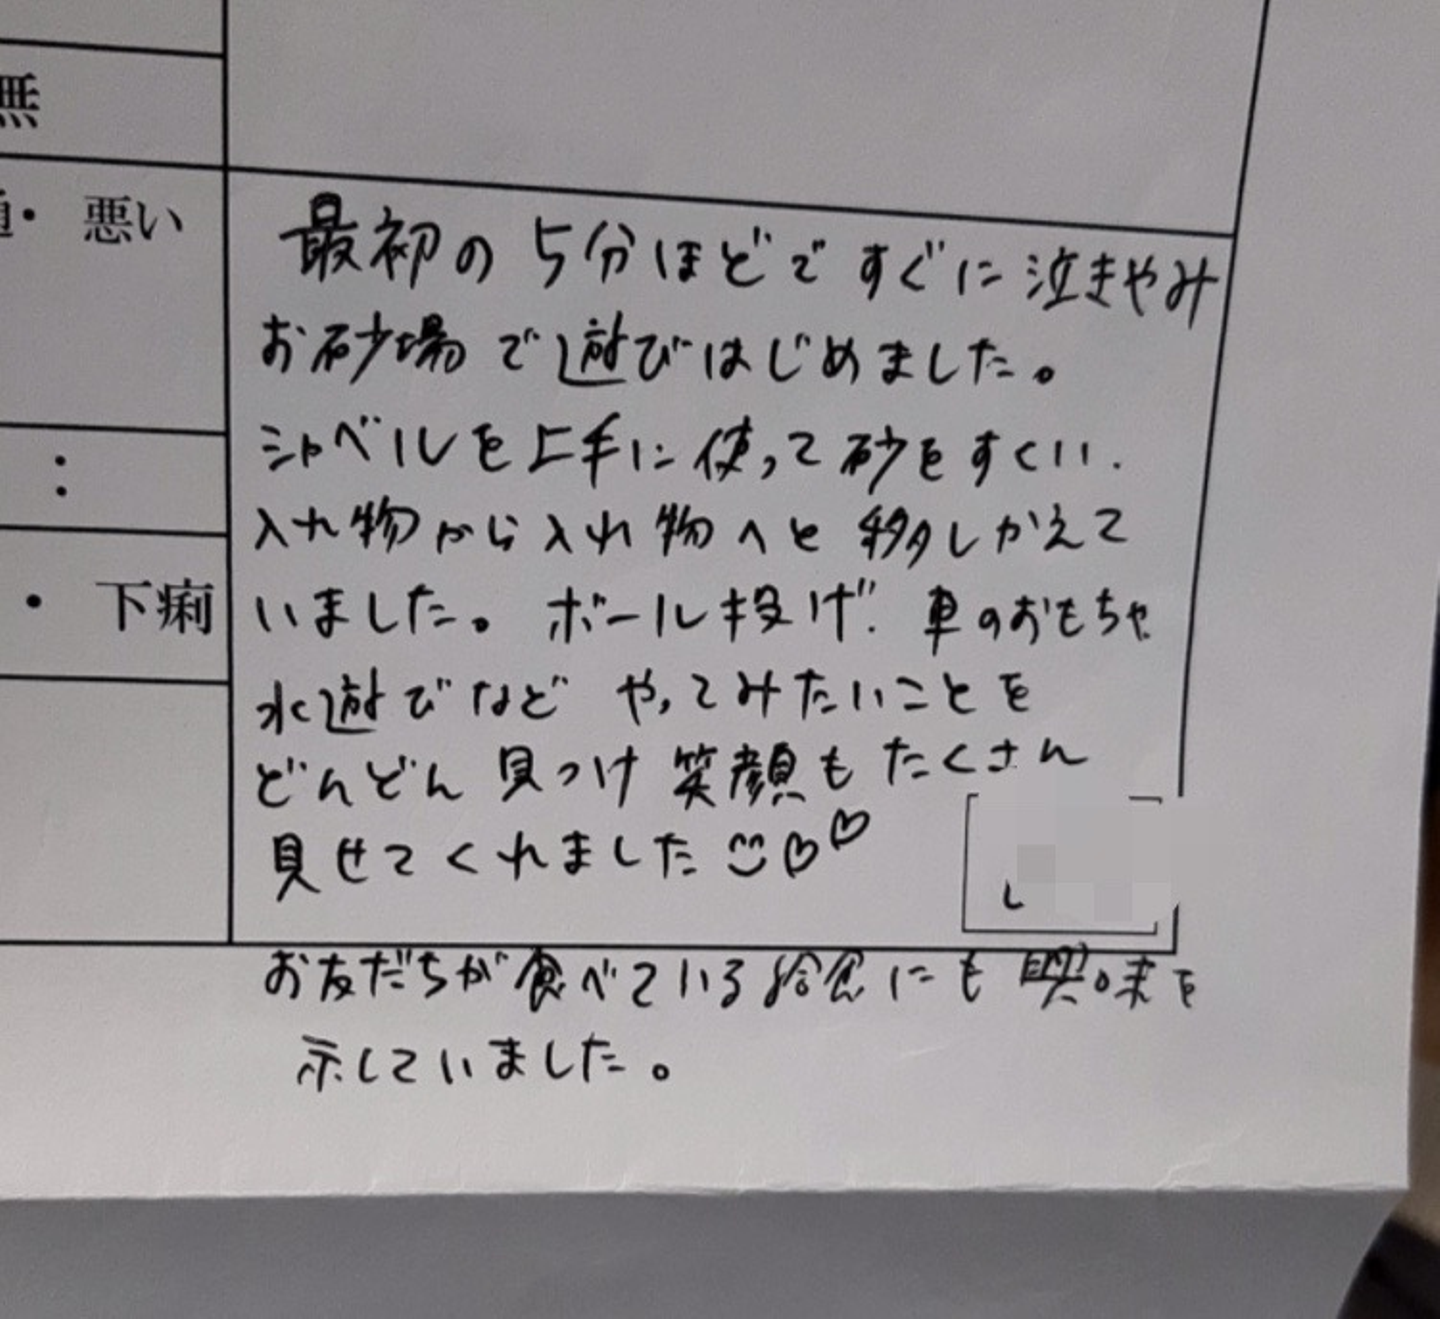 無
・ 悪い
：
・ 下痢
最初の5分ほどですぐに泣きやみ
お砂場で遊びはじめました。
シャベルを上手に使って砂をすくい、
入れ物から入れ物へと移しかえて
いました。ボール投げ、車のおもちゃ
水遊びなど やってみたいことを
どんどん見つけ笑顔もたくさん
見せてくれました
お友だちが食べている給食にも興味を
示していました。